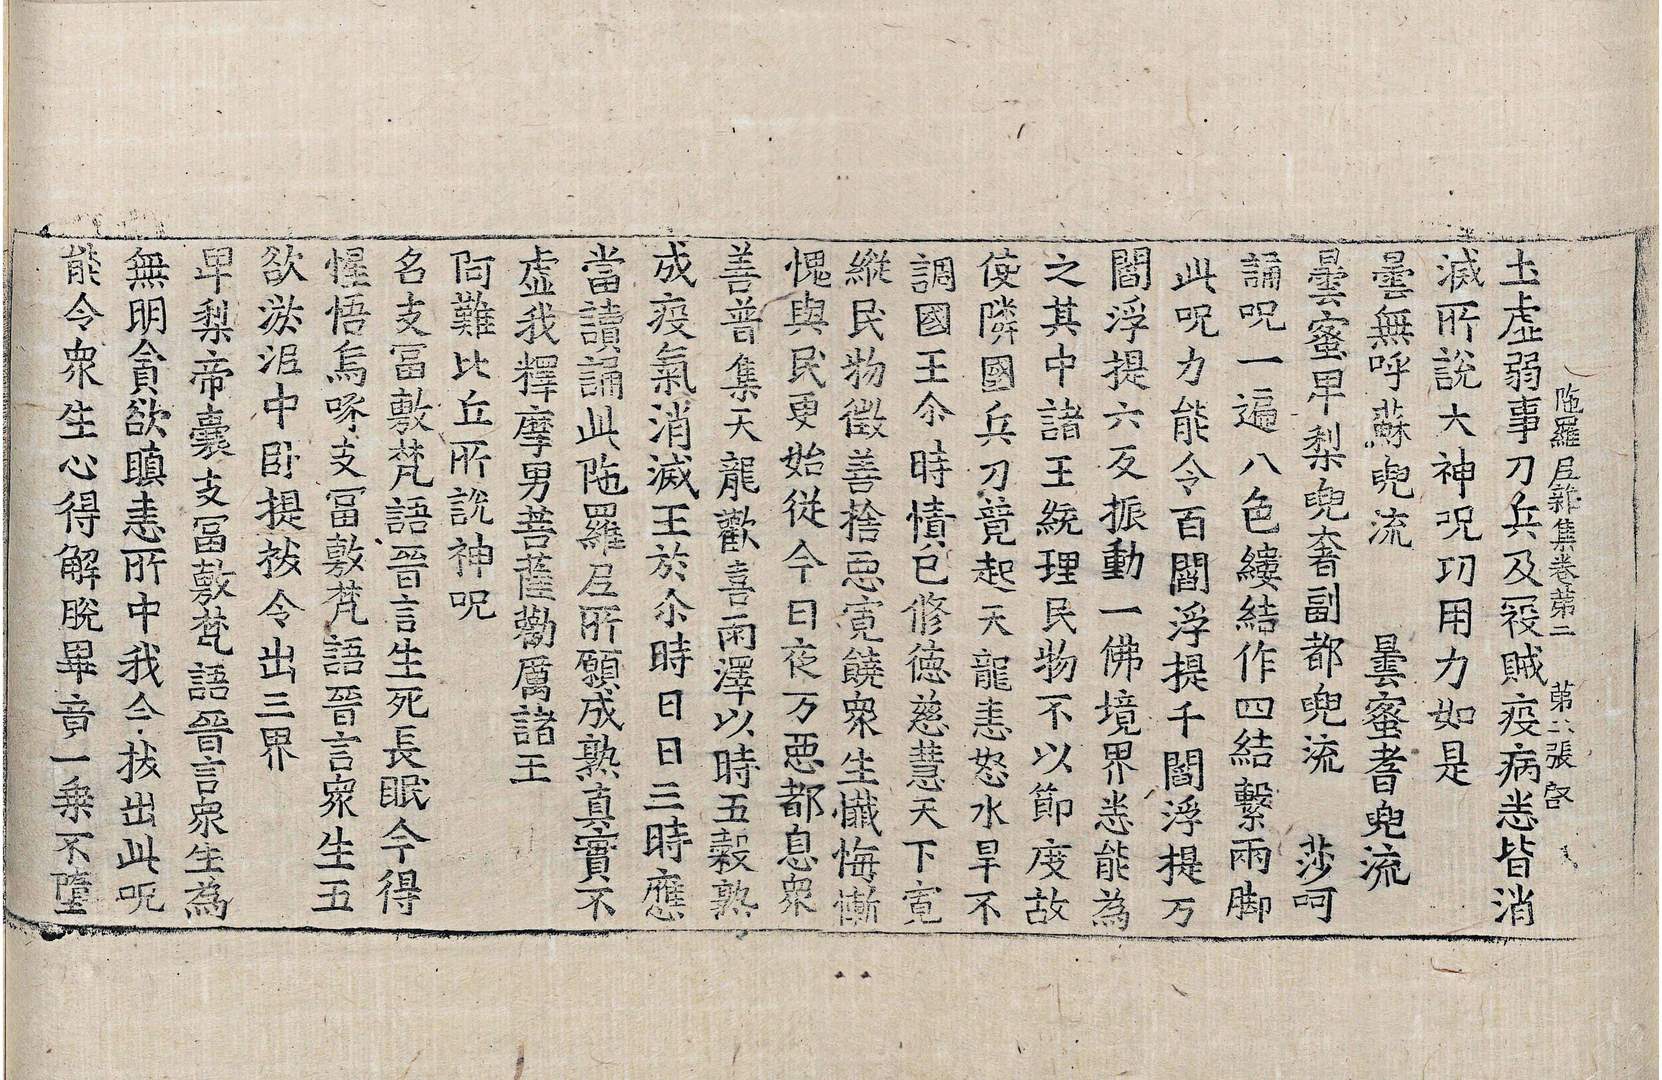 陁羅尼雜集卷第二 第六張 啓
土虛弱事刀兵及役賊疫病悉皆消
滅所說大神呪功用力如是
曇無呼蘇兜流 曇蜜耆兜流
曇蜜卑梨兜奢副都兜流 莎呵
誦呪一遍八色縷結作四結繫兩脚
此呪力能令百閻浮提千閻浮提万
閻浮提六反振動一佛境界悉能為
之其中諸王統理民物不以節度故
使隣國兵刀競起天龍恚怒水旱不
調國王尒時責己修德慈慧天下寬
縱民物徵善捨惡寬饒衆生懺悔慚
愧與民更始從今日夜万惡都息衆
善普集天龍歡喜雨澤以時五穀熟
成疫氣消滅王於尒時日日三時應
當讀誦此陁羅尼所願成熟真實不
虛我釋摩男菩薩勸厲諸王
阿難比丘所說神呪
名支冨敷梵語晉言生死長眠令得
惺悟烏啄支冨敷梵語晉言衆生五
欲淤泥中卧提拔令出三界
卑梨帝囊支冨敷梵語晉言衆生為
無明貪欲瞋恚所中我今拔出此呪
能令衆生心得解脫畢竟一乘不墮